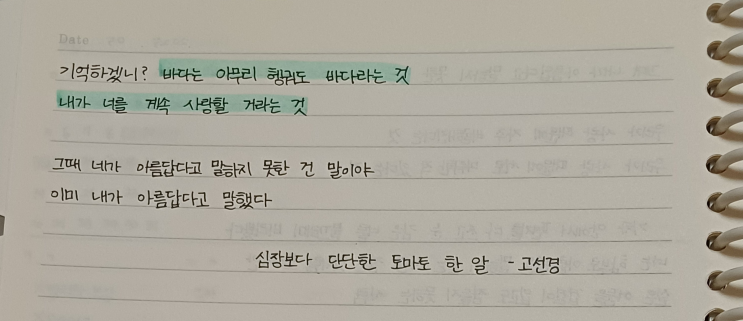 Date
기억하겠니? 바다는 아무리 헹궈도 바다라는 것
내가 너를 계속 사랑할 거라는 것
그때 네가 아름답다고 말하지 못한 건 말이야
이미 내가 아름답다고 말했다
심장보다 단단한 토마토 한 알 - 고선경